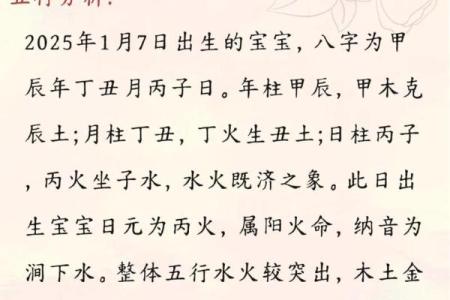 五行分析：
2025年1月7日出生的宝宝，八字为甲
辰年丁丑月丙子日。年柱甲辰，甲木克
辰土;月柱丁丑，丁火生丑土;日柱丙子
，丙火坐子水，水火既济之象。此日出
生宝宝日元为丙火，属阳火命，纳音为
涧下水。整体五行水火较突出，木土金